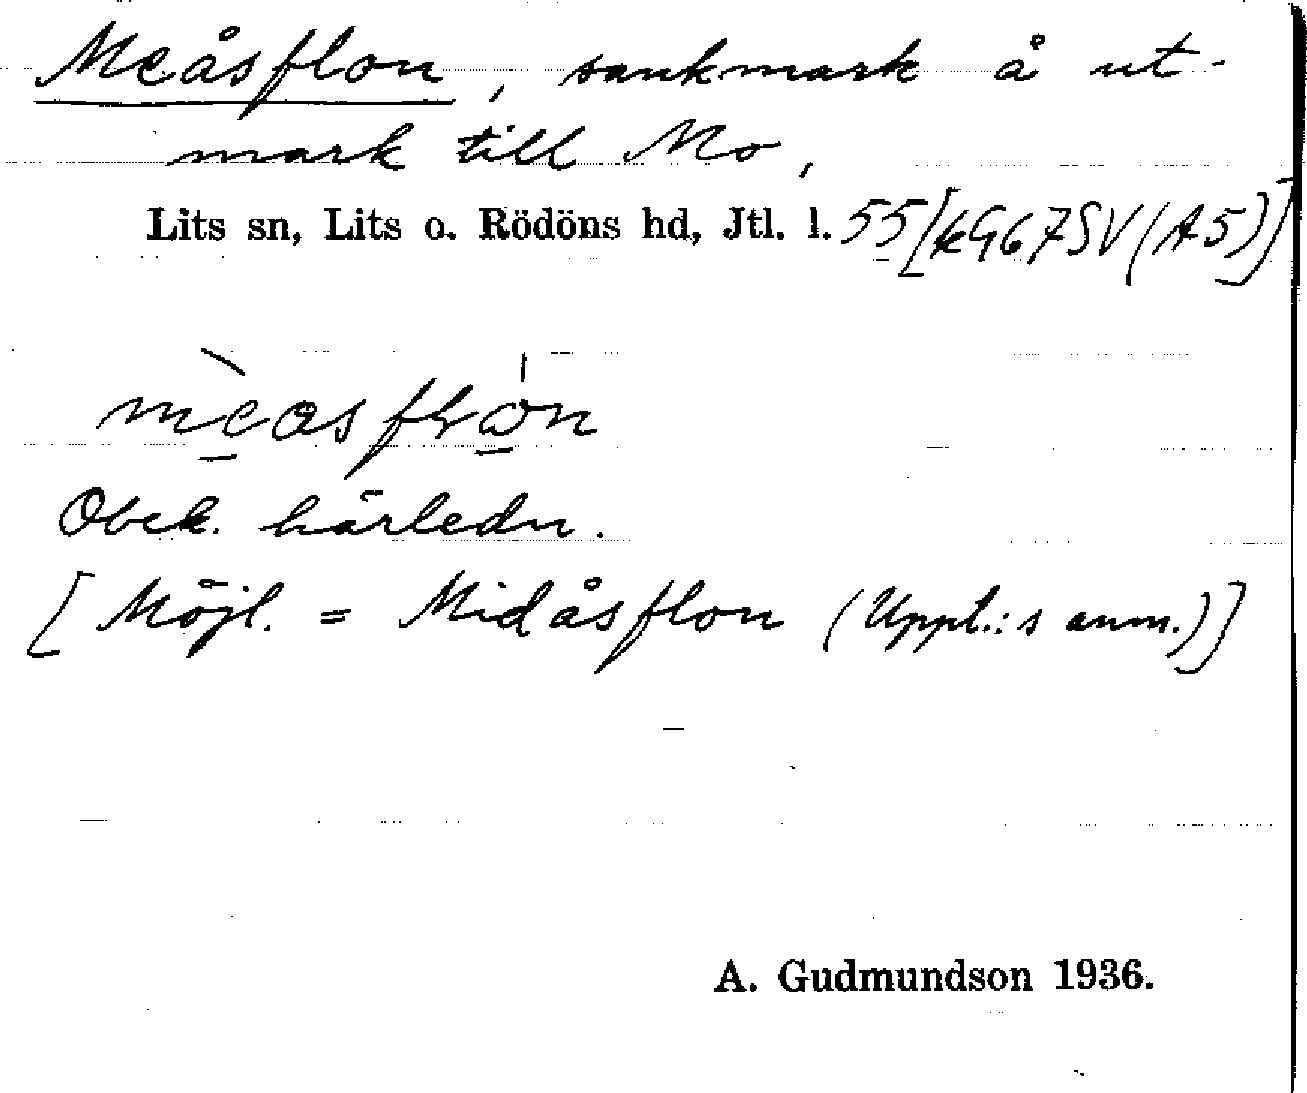 Meåsflon, sankmark å ut-
mark till Mo,
Lits sn, Lits o. Rödöns hd, Jtl. l. 55 [kG67SV(A5)]
Obek. härledn.
[Möjl. = Midåsflon (Uppt.:s anm.)]
A. Gudmundson 1936.